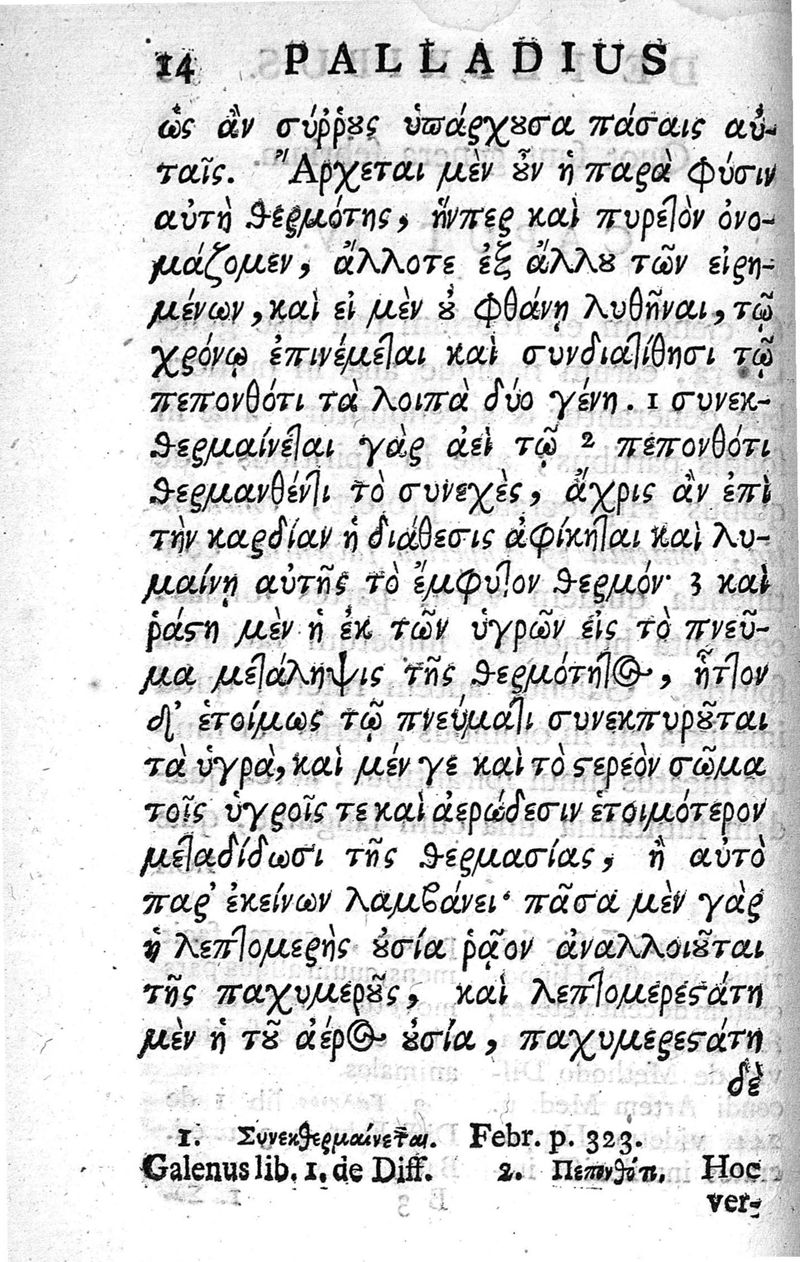 14 PALLADIUS
ὡς ἂν σύῤῥους ὑπάρχουσα πάσαις αὐ-
ταῖς. Ἄρχεται μὲν οὖν ἡ παρὰ φύσιν
αὐτὴ θερμότης, ἥνπερ καὶ πυρετὸν ὀνο-
μάζομεν, ἄλλοτε ἐξ ἄλλου τῶν εἰρη-
μένων, καὶ εἰ μὲν οὐ φθάνῃ λυθῆναι, τῷ
χρόνῳ ἐπινέμεται καὶ συνδιατίθησι τῷ
πεπονθότι τὰ λοιπὰ δύο γένη. 1 συνεκ-
θερμαίνεται γὰρ ἀεὶ τῷ 2 πεπονθότι
θερμανθέντι τὸ συνεχὲς, ἄχρις ἂν ἐπὶ
τὴν καρδίαν ἡ διάθεσις ἀφίκηται καὶ λυ-
μαίνῃ αὐτῆς τὸ ἔμφυτον θερμόν· 3 καὶ
ῥάστη μὲν ἡ ἐκ τῶν ὑγρῶν εἰς τὸ πνεῦ-
μα μετάληψις τῆς θερμότητος, ἧττον
δ' ἑτοίμως τῷ πνεύματι συνεκπυροῦται
τὰ ὑγρὰ, καὶ μέν γε καὶ τὸ στερεὸν σῶμα
τοῖς ὑγροῖς τε καὶ ἀερώδεσιν ἑτοιμότερον
μεταδίδωσι τῆς θερμασίας, ἢ αὐτὸ
παρ' ἐκείνων λαμβάνει· πᾶσα μὲν γὰρ
ἡ λεπτομερὴς οὐσία ῥᾷον ἀναλλοιοῦται
τῆς παχυμεροῦς, καὶ λεπτομερεστάτη
μὲν ἡ τοῦ ἀέρος οὐσία, παχυμερεστάτη
δὲ
1. Συνεκθερμαίνεται. Febr. p. 323.
Galenus lib. 1. de Diff. 2. Πεπονθότι. Hoc
ver-